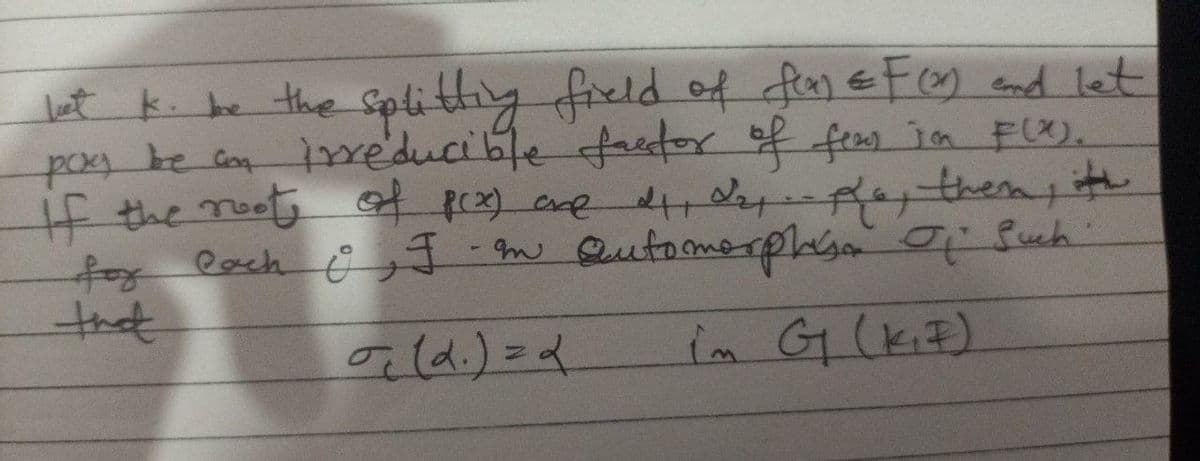 Let k. be the Splitting field of f(x) ∈ F(x) and let
p(x) be an irreducible factor of f(x) in F(x).
If the roots of p(x) are α1, α2, -- then,
for each i, I - an automorphism σi such
that
σi(α.) = α in G(K,F)